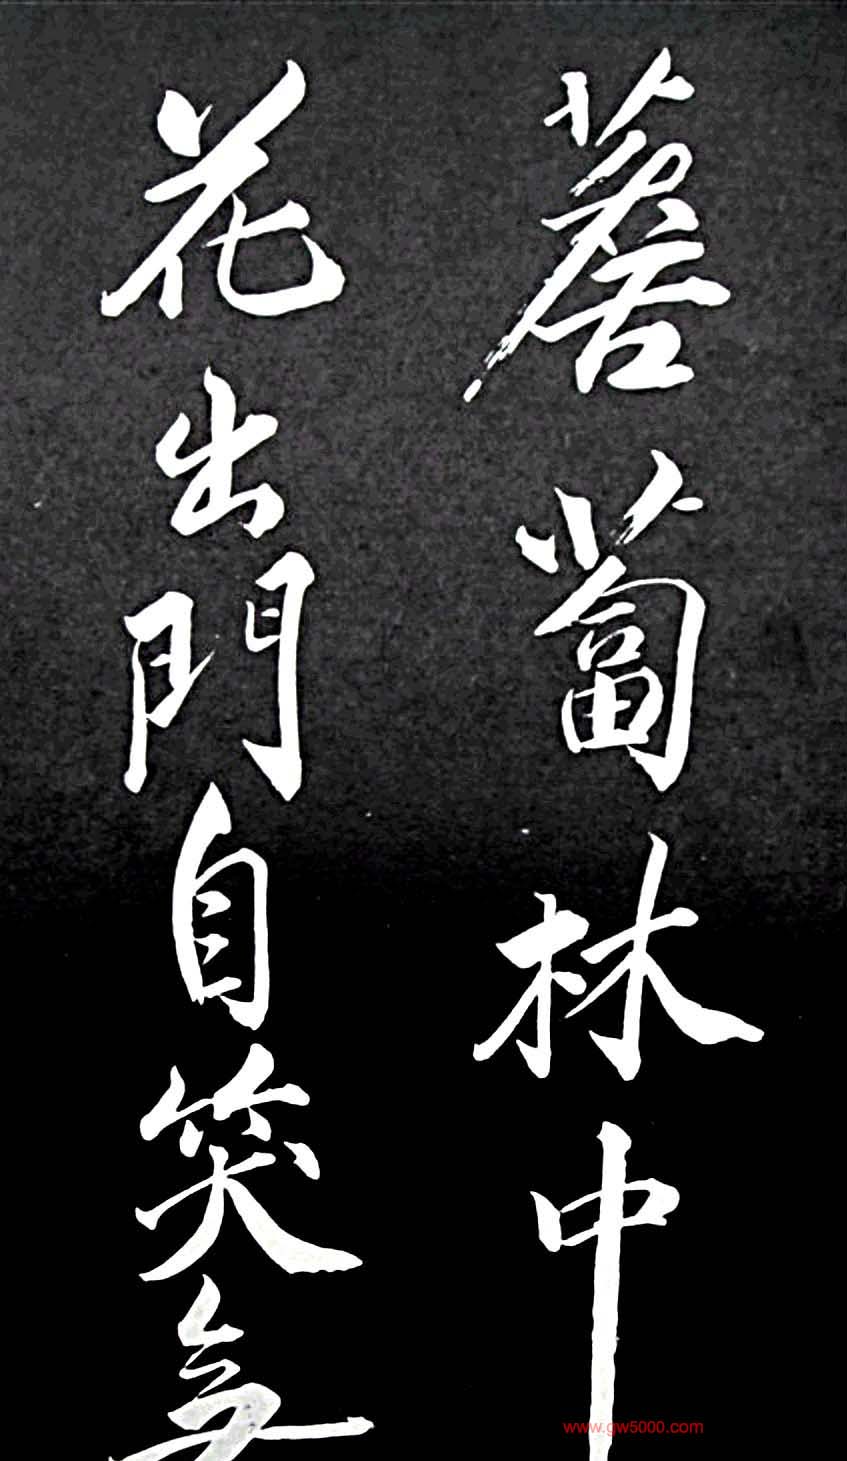 薝蔔林中
花出門自笑
www.gw5000.com